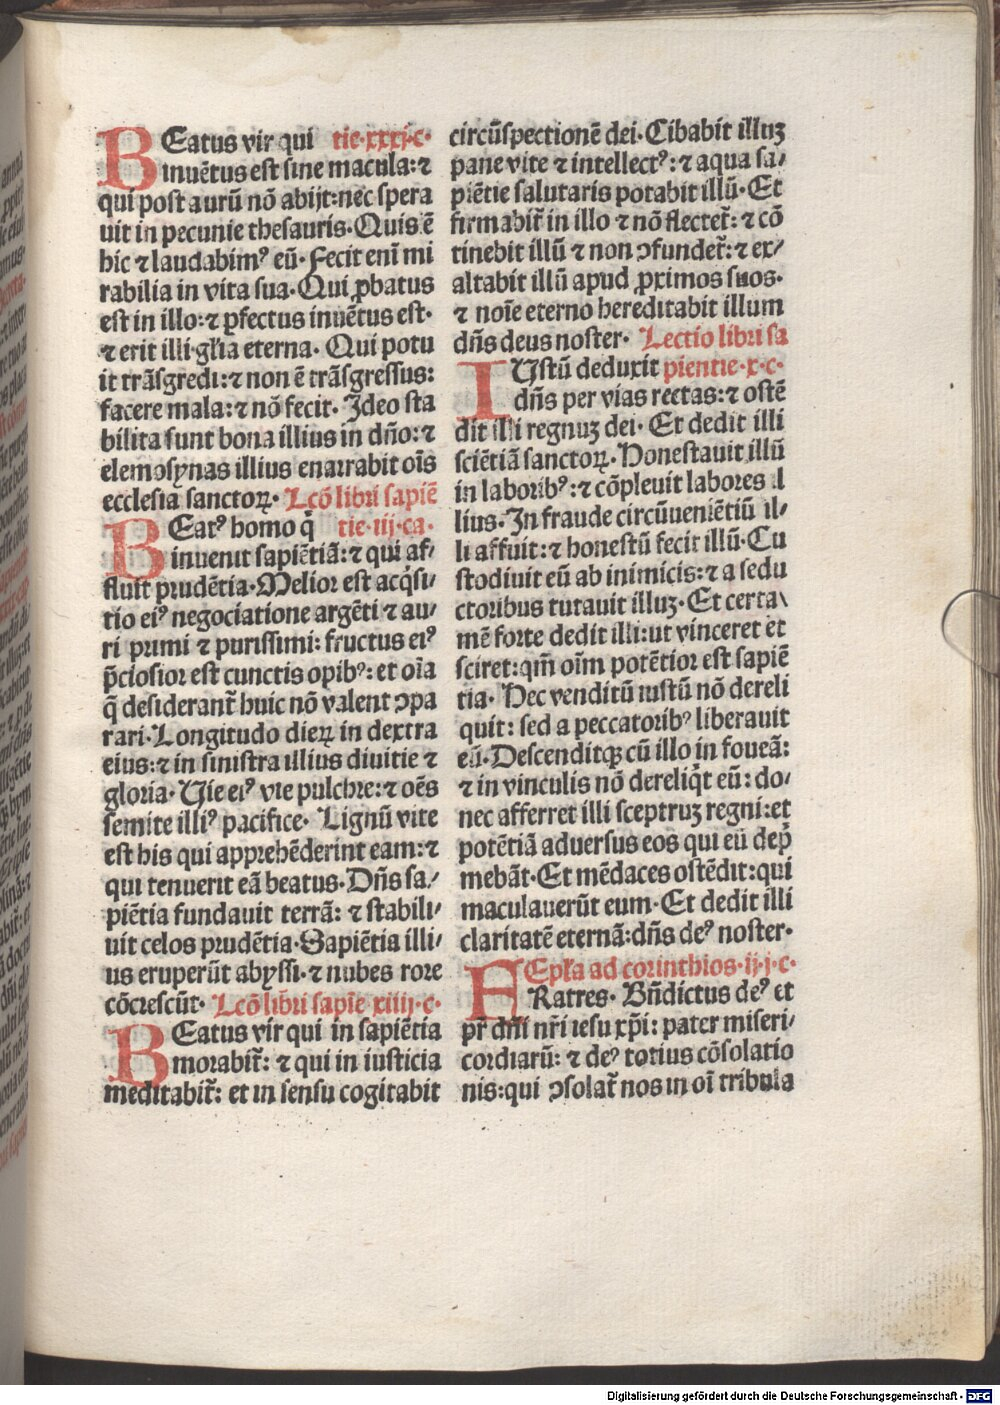 BEatus vir qui tie·xxxj·c·
inuētus est sine macula: ⁊
qui post aurū nō abijt: nec spera
uit in pecunie thesauris· Quis ē
hic ⁊ laudabimꝰ eū· Fecit enī mi
rabilia in vita sua· Qui ꝓbatus
est in illo: ⁊ ꝑfectus inuētus est·
⁊ erit illi gl̄ia eterna· Qui potu
it trāsgredi: ⁊ non ē trāsgressus:
facere mala: ⁊ nō fecit· Ideo sta
bilita sunt bona illius in dn̄o: ⁊
elemosynas illius enarrabit oīs
ecclesia sanctoꝝ· Lcō libri sapiē
BEatꝰ homo q̄ tie·iij·ca·
inuenit sapiētiā: ⁊ qui af⸗
fluit prudētia· Melior est acq̇si⸗
tio eiꝰ negociatione argēti ⁊ au⸗
ri primi ⁊ purissimi: fructus eiꝰ
p̄ciosior est cunctis opibꝰ: et oīa
q̄ desiderant̄ huic nō valent ↄpa
rari· Longitudo dieꝝ in dextra
eius: ⁊ in sinistra illius diuitie ⁊
gloria· Uie eiꝰ vie pulchre: ⁊ oēs
semite illiꝰ pacifice· Lignū vite
est his qui apprehēderint eam: ⁊
qui tenuerit eā beatus· Dn̄s sa⸗
piētia fundauit terrā: ⁊ stabili⸗
uit celos prudētia· Sapiētia illi⸗
us eruperūt abyssi· ⁊ nubes rore
cōcrescūt· Lcō libri sapīe xiiij·c·
BEatus vir qui in sapiētia
morabit̄: ⁊ qui in iusticia
meditabit̄: et in sensu cogitabit
circūspectionē dei· Cibabit illuꝫ
pane vite ⁊ intellectꝰ: ⁊ aqua sa⸗
piētie salutaris potabit illū· Et
firmabit̄ in illo ⁊ nō flectet̄: ⁊ cō
tinebit illū ⁊ non ↄfundet̄: ⁊ ex⸗
altabit illū apud ꝓximos suos·
⁊ noīe eterno hereditabit illum
dn̄s deus noster· Lectio libri sa
IUstū deduxit pientie·x·c·
dn̄s per vias rectas: ⁊ ostē
dit illi regnuꝫ dei· Et dedit illi
sciētiā sanctoꝝ· Honestauit illū
in laboribꝰ: ⁊ cōpleuit labores il
lius· In fraude circūueniētiū il⸗
li affuit: ⁊ honestū fecit illū· Cu
stodiuit eū ab inimicis: ⁊ a sedu
ctoribus tutauit illuꝫ· Et certa⸗
mē forte dedit illi: ut vinceret et
sciret: qm̄ oīm potētior est sapiē
tia· Hec venditū iustū nō dereli
quit: sed a peccatoribꝰ liberauit
eū· Descenditqꝫ cū illo in foueā:
⁊ in vinculis nō dereliq̇t eū: do⸗
nec afferret illi sceptruꝫ regni: et
potētiā aduersus eos qui eū dep̄
mebāt· Et mēdaces ostēdit: qui
maculauerūt eum· Et dedit illi
claritatē eternā: dn̄s deꝰ noster·
Epl̄a ad corinthios·ij·j·c·
FRatres· Bn̄dictus deꝰ et
pr̄ dn̄i nr̄i iesu xp̄i: pater miseri⸗
cordiarū: ⁊ deꝰ totius cōsolatio
nis: qui ↄsolat̄ nos in oī tribula